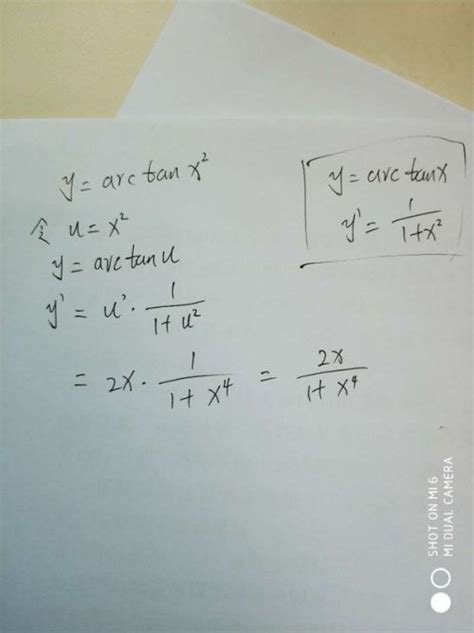 y = arc tan x²
令 u = x²
y = arctan u
y' = u' · 1/(1+u²)
= 2x · 1/(1+x⁴) = 2x/(1+x⁴)
y = arc tanx
y' = 1/(1+x²)
SHOT ON MI 6
MI DUAL CAMERA